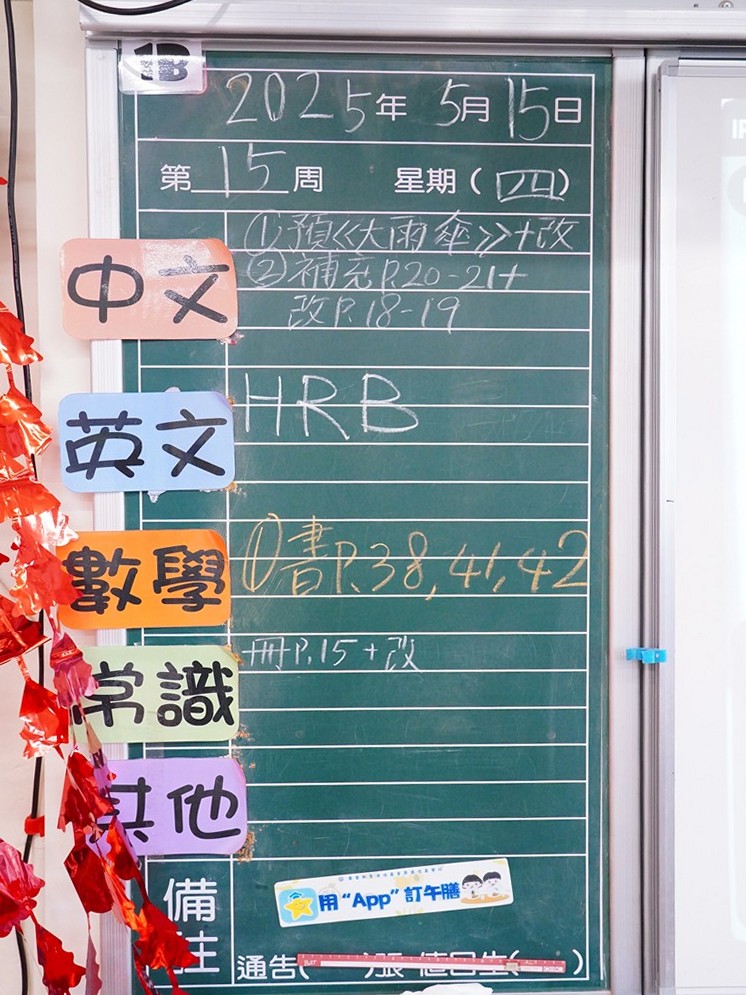 1B
2025年 5月15日
第15周 星期(四)
中文
①預《大雨傘》+改
②補充P.20-21+
改P.18-19
英文
HRB
數學
①書P.38,41,42
常識
冊P.15+改
其他
備註
用“App”訂午膳
通告( )張 值日生( )